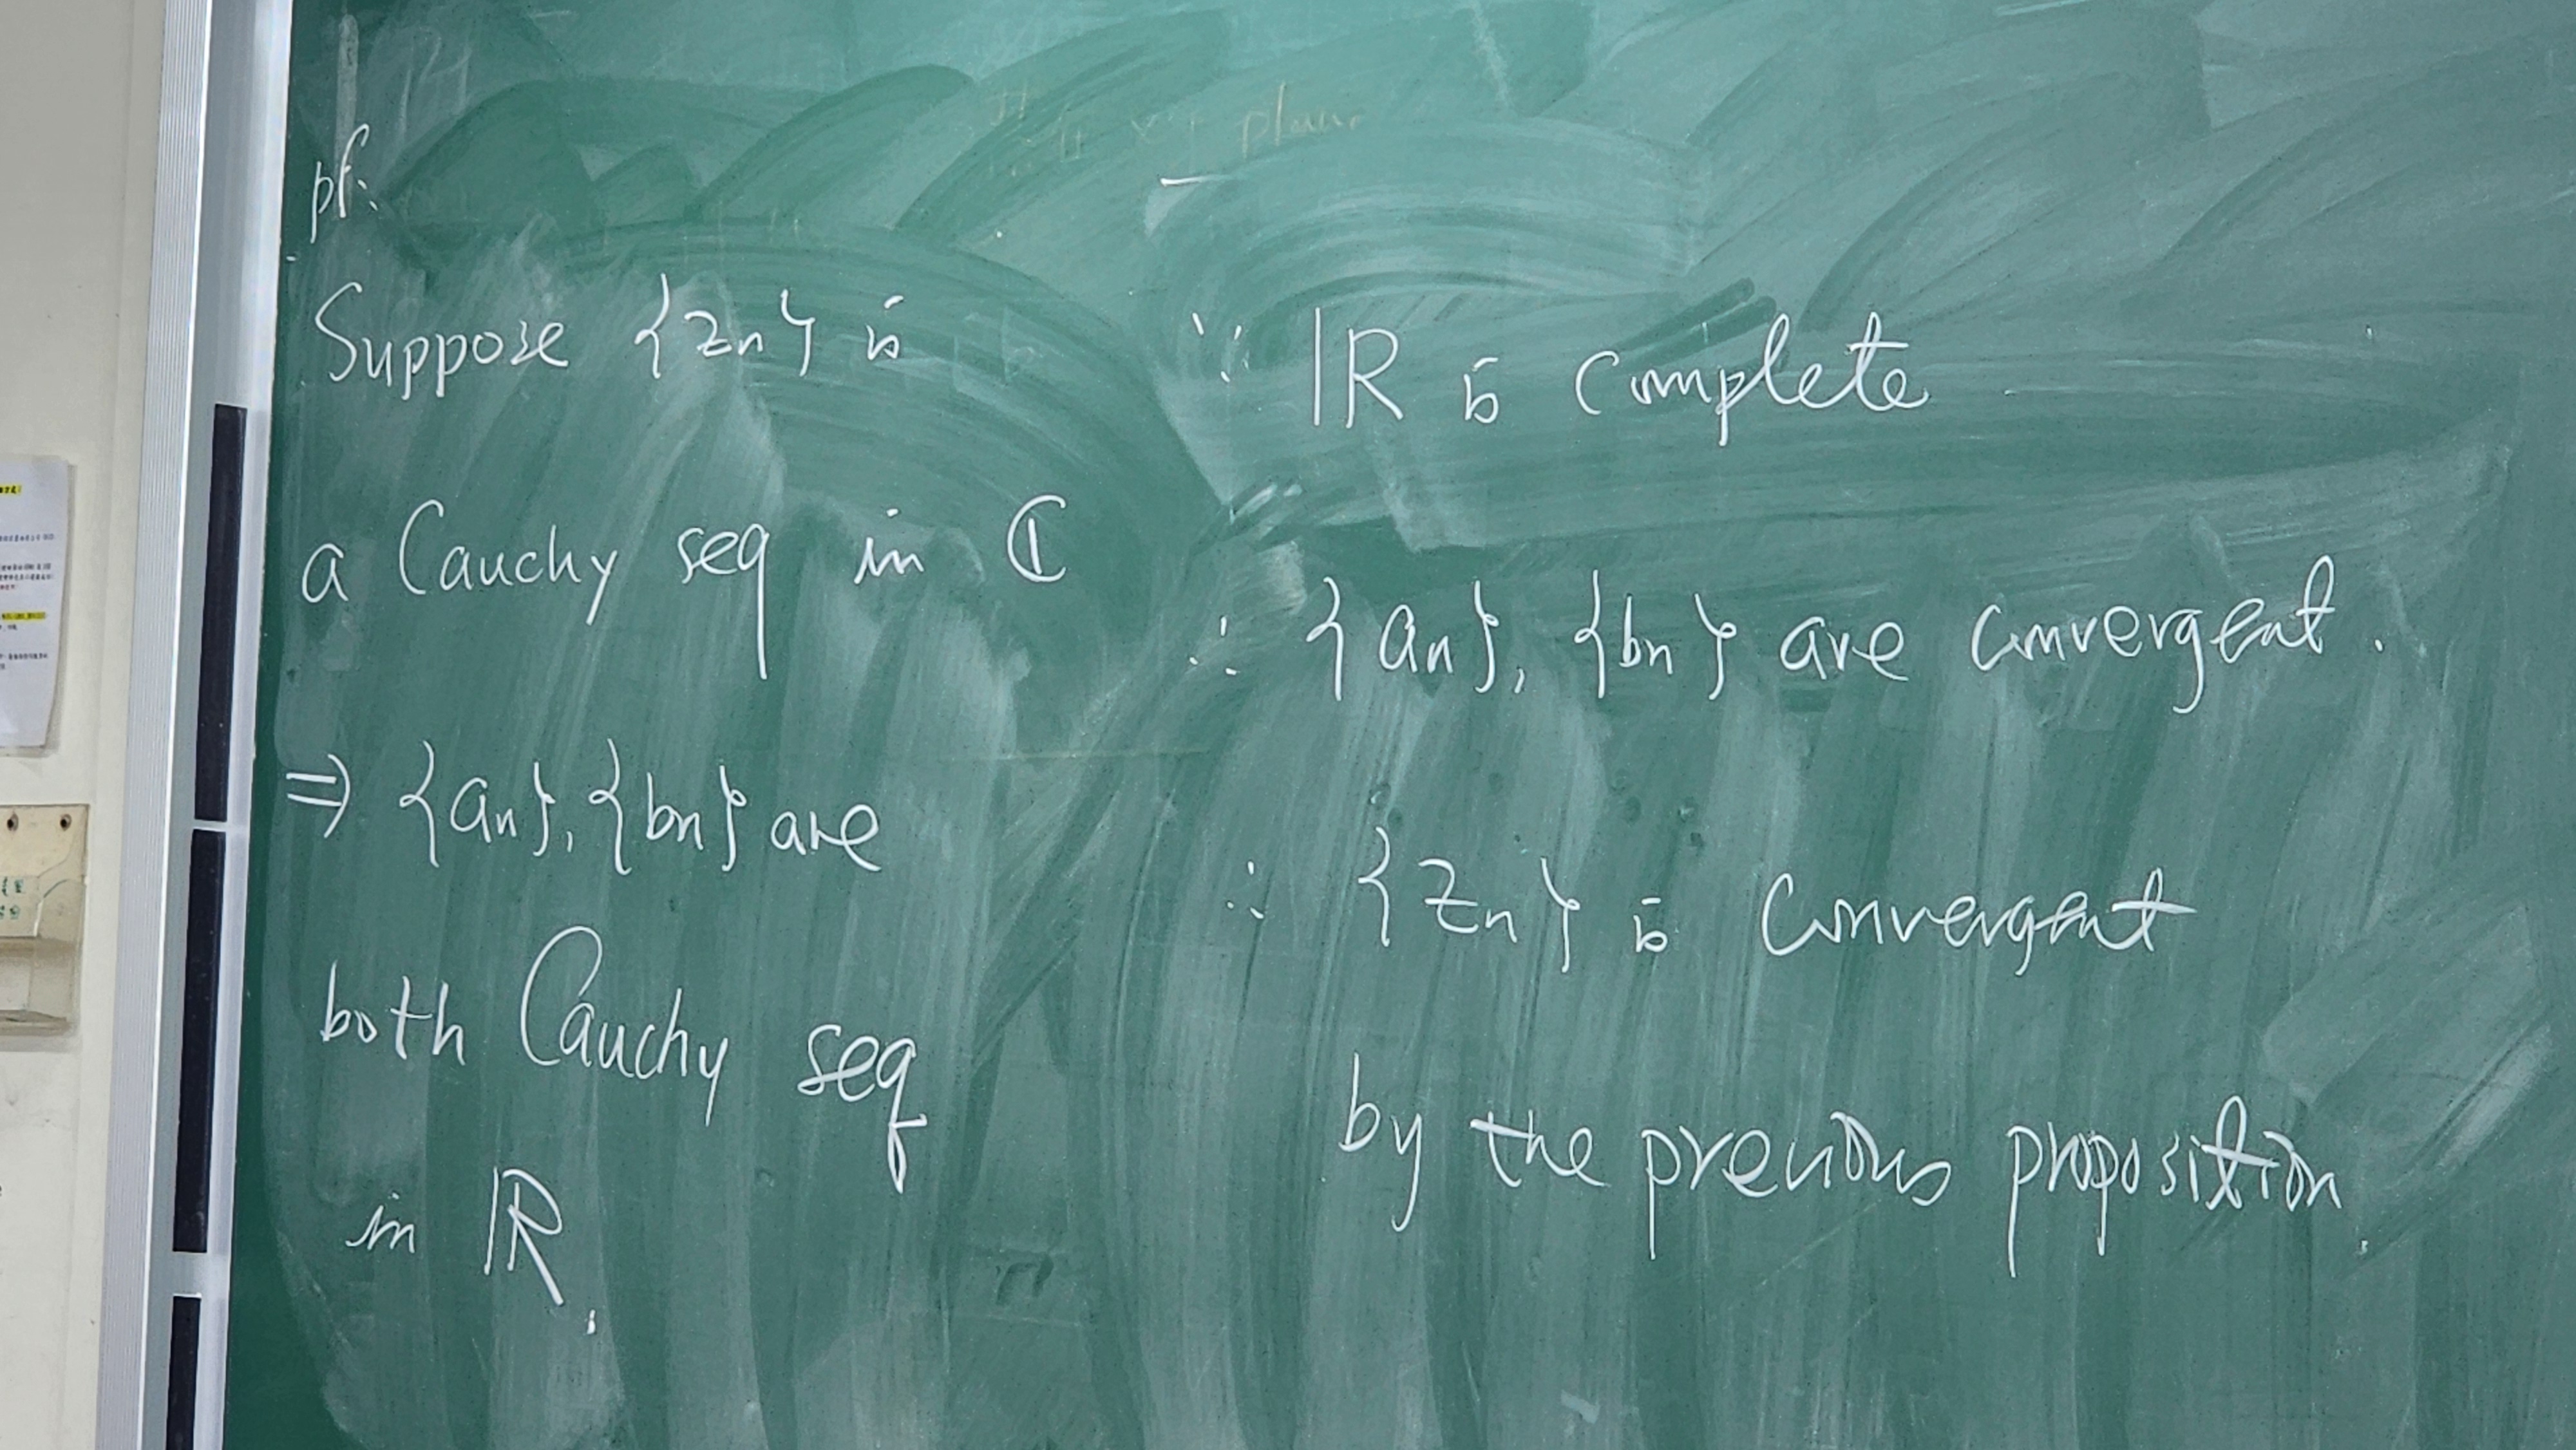 pf.
Suppose {zn} is
a Cauchy seq in ℂ
⇒ {an}, {bn} are
both Cauchy seq
in ℝ.
∵ ℝ is complete
∴ {an}, {bn} are convergent.
∴ {Zn} is convergent
by the previous proposition.